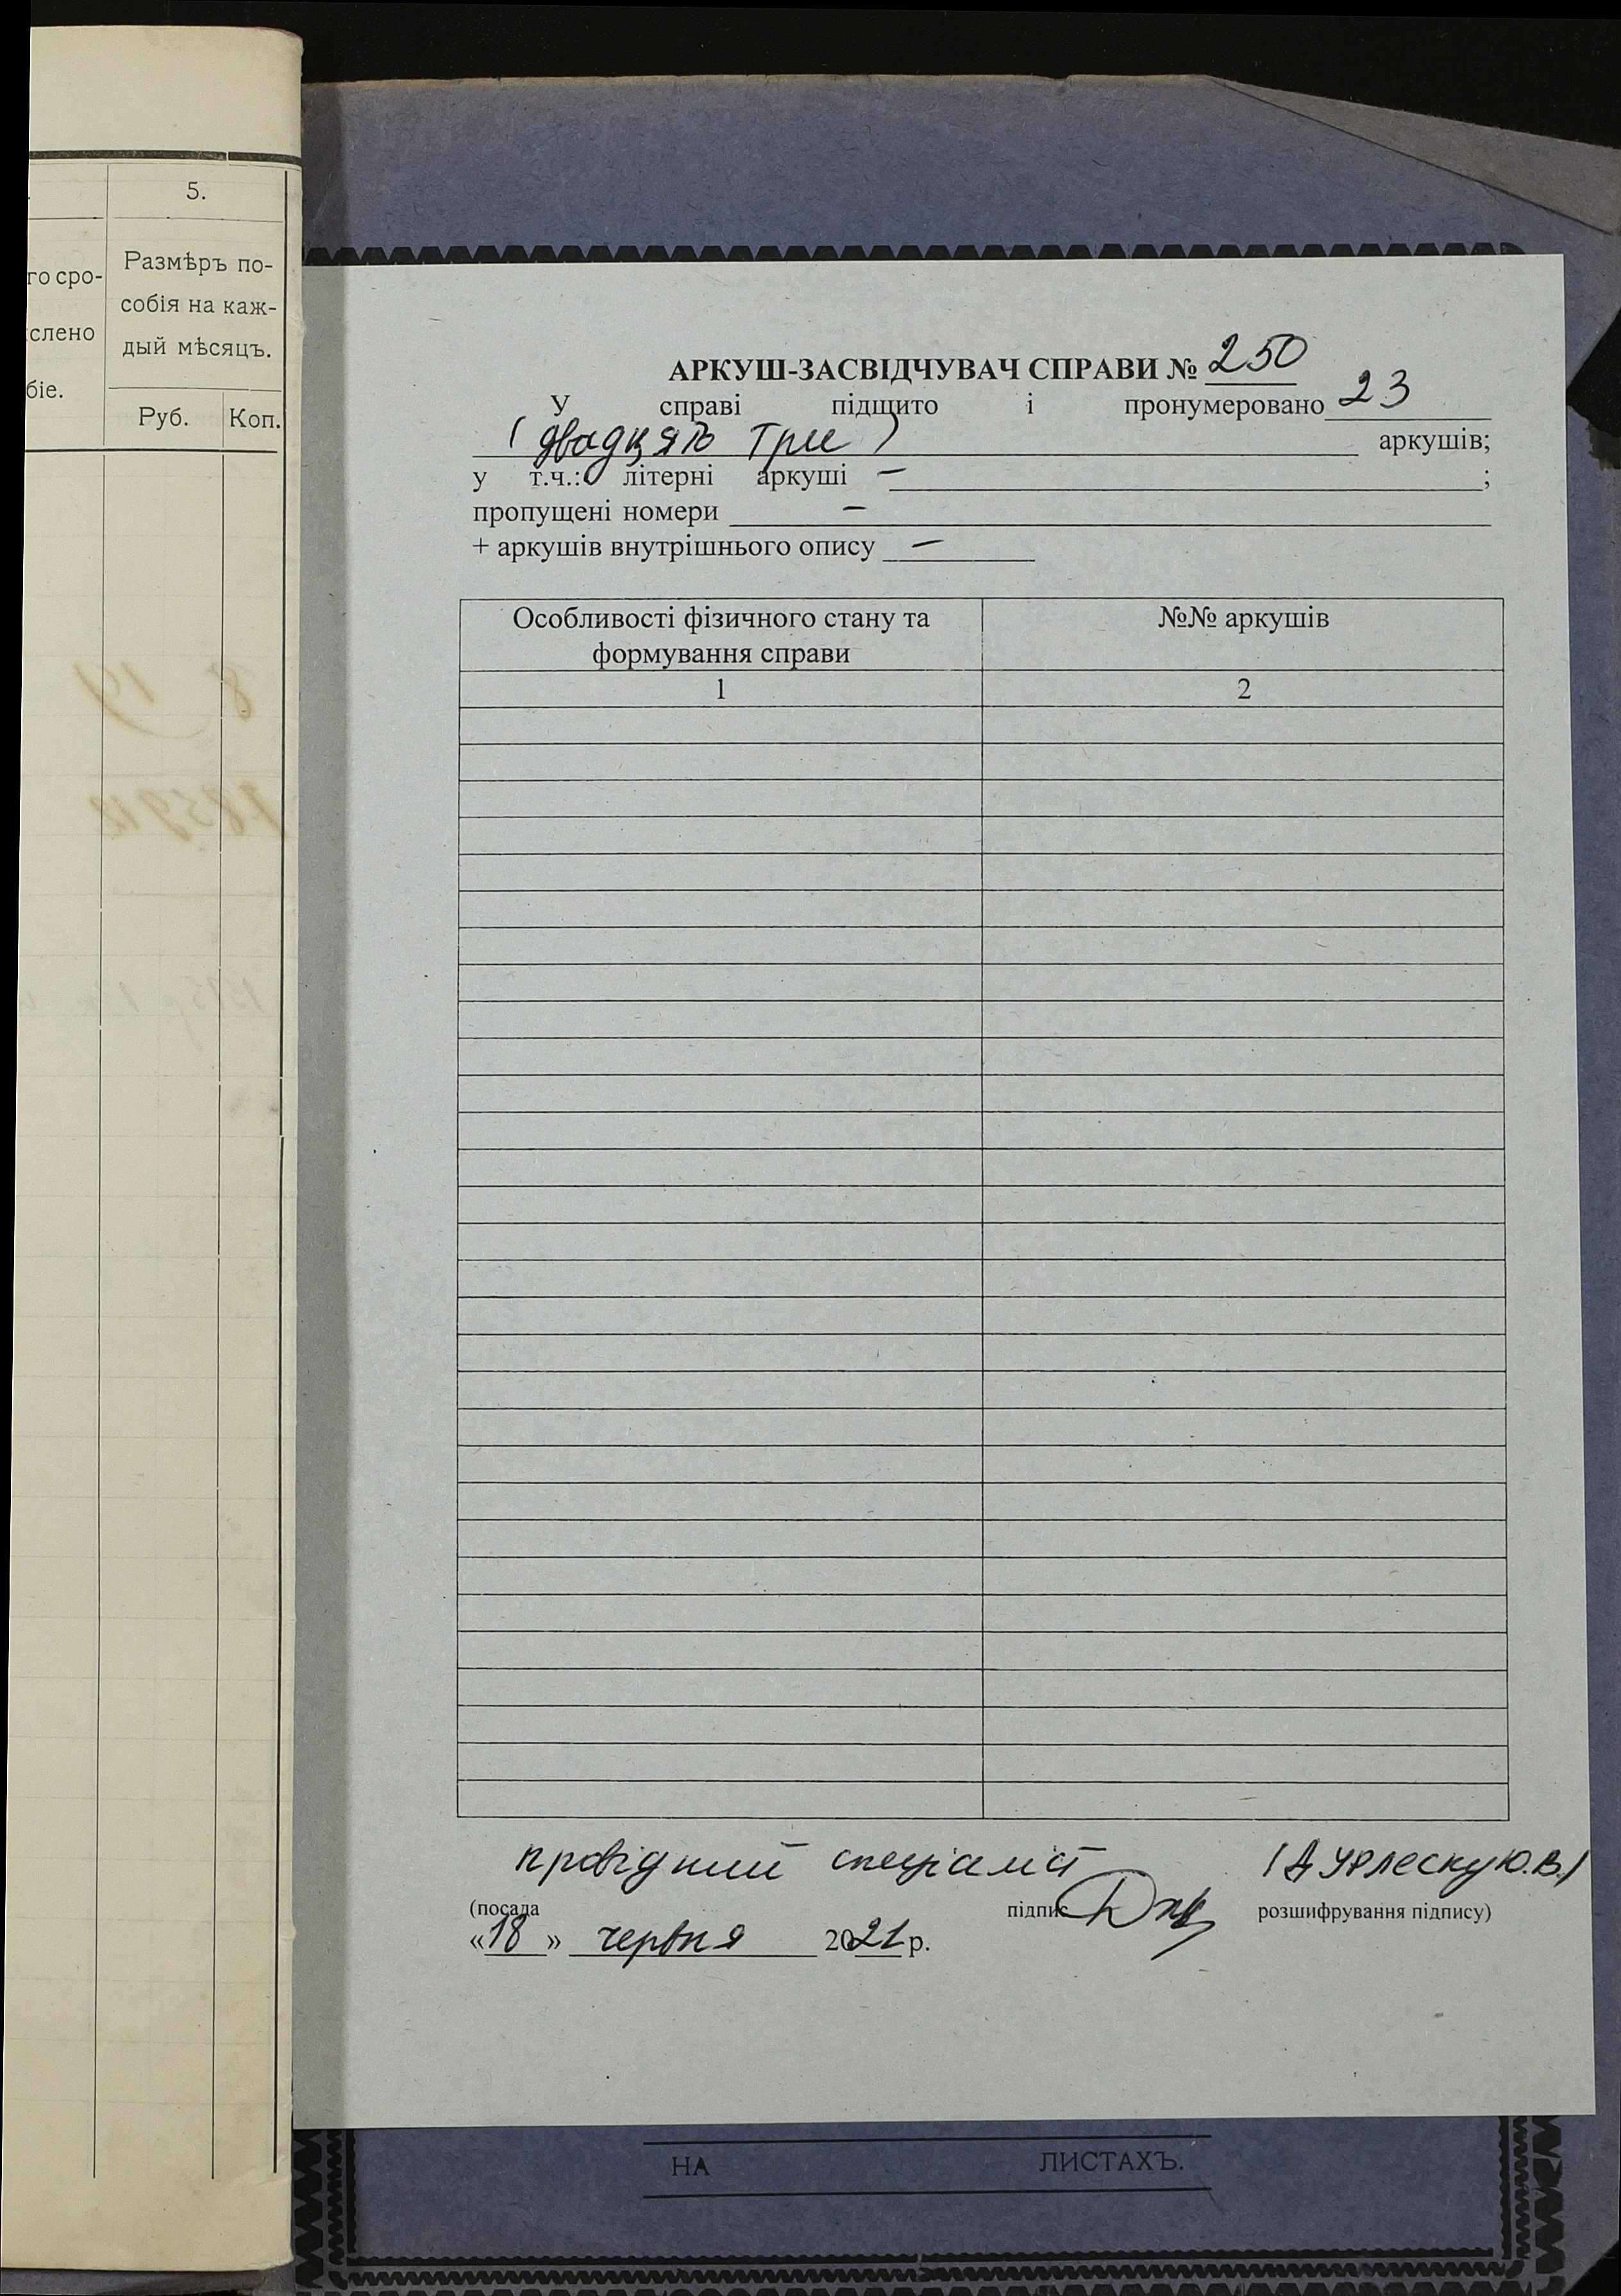 5.
го сро-
слено
біе.
Размѣръ по-
собія на каж-
дый мѣсяцъ.
Руб. Коп.
АРКУШ-ЗАСВІДЧУВАЧ СПРАВИ № 250
У справі підшито і пронумеровано 23
(двадцять три) аркушів;
у т.ч.: літерні аркуші – ;
пропущені номери –
+ аркушів внутрішнього опису –
Особливості фізичного стану та
формування справи
№№ аркушів
1 2
провідний спеціаліст (Дурлеску Ю.В.)
(посада підпис розшифрування підпису)
«18» червня 2021 р.
НА ЛИСТАХЪ.